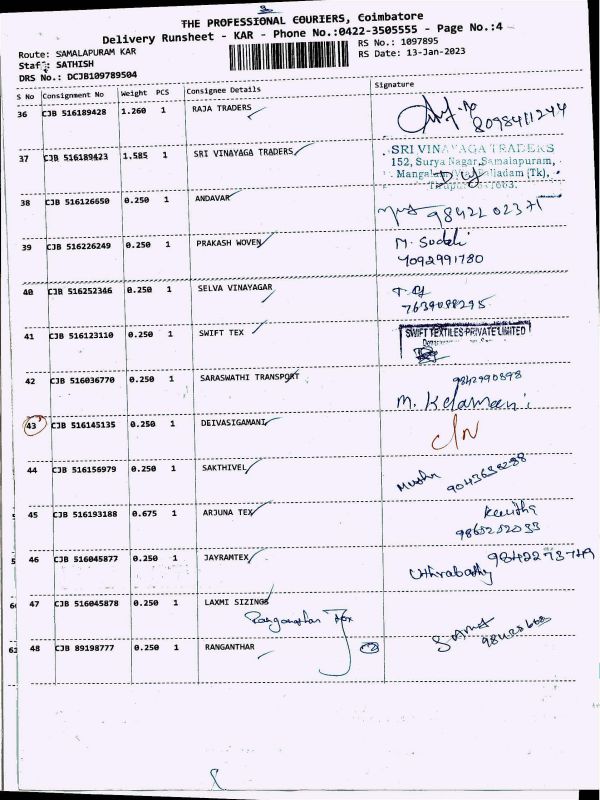 THE PROFESSIONAL COURIERS, Coimbatore
Delivery Runsheet - KAR - Phone No.:0422-3505555 - Page No.:4
Route: SAMALAPURAM KAR
RS No.: 1097895
Staff: SATHISH
RS Date: 13-Jan-2023
DRS No.: DCJB109789504
S No Consignment No Weight PCS Consignee Details Signature
36 CJB 516189428 1.260 1 RAJA TRADERS
8098411244
37 CJB 516189423 1.585 1 SRI VINAYAGA TRADERS
SRI VINAYAGA TRADERS
152, Surya Nagar, Samalapuram,
38 CJB 516126650 0.250 1 ANDAVAR
98422 02375
39 CJB 516226249 0.250 1 PRAKASH WOVEN
M. Sudeli
7092991780
40 CJB 516252346 0.250 1 SELVA VINAYAGAR
41 CJB 516123110 0.250 1 SWIFT TEX
SWIFT TEXTILES PRIVATE LIMITED
42 CJB 516036770 0.250 1 SARASWATHI TRANSPORT
43 CJB 516145135 0.250 1 DEIVASIGAMANI
44 CJB 516156979 0.250 1 SAKTHIVEL
45 CJB 516193188 0.675 1 ARJUNA TEX
9865252033
46 CJB 516045877 0.250 1 JAYRAMTEX
9842273749
47 CJB 516045878 0.250 1 LAXMI SIZINGS
Ranganathan Tex
48 CJB 89198777 0.250 1 RANGANTHAR